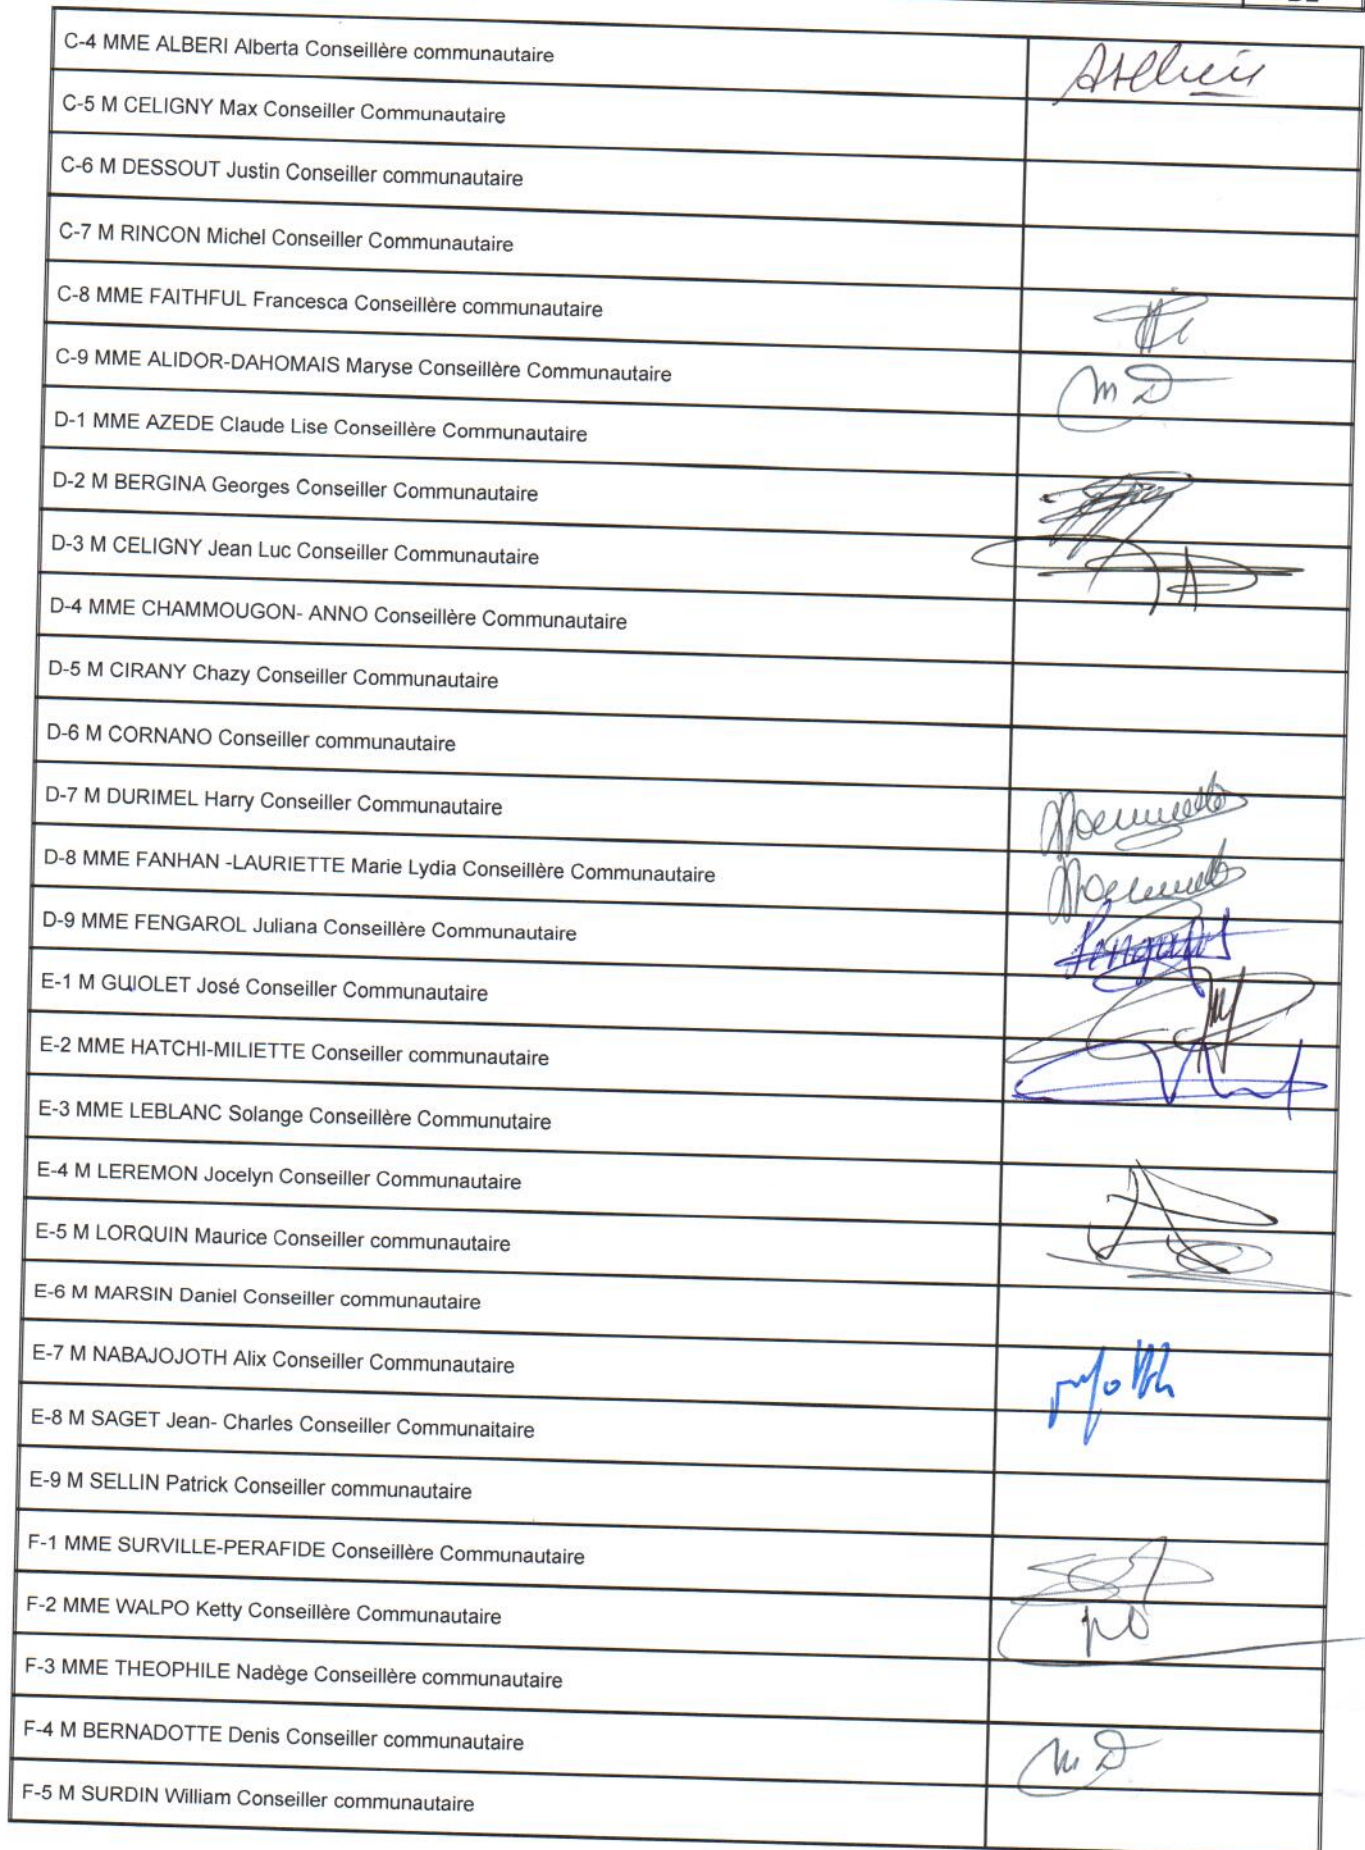 C-4 MME ALBERI Alberta Conseillère communautaire
C-5 M CELIGNY Max Conseiller Communautaire
C-6 M DESSOUT Justin Conseiller communautaire
C-7 M RINCON Michel Conseiller Communautaire
C-8 MME FAITHFUL Francesca Conseillère communautaire
C-9 MME ALIDOR-DAHOMAIS Maryse Conseillère Communautaire
m D
D-1 MME AZEDE Claude Lise Conseillère Communautaire
D-2 M BERGINA Georges Conseiller Communautaire
D-3 M CELIGNY Jean Luc Conseiller Communautaire
D-4 MME CHAMMOUGON- ANNO Conseillère Communautaire
D-5 M CIRANY Chazy Conseiller Communautaire
D-6 M CORNANO Conseiller communautaire
D-7 M DURIMEL Harry Conseiller Communautaire
D-8 MME FANHAN -LAURIETTE Marie Lydia Conseillère Communautaire
D-9 MME FENGAROL Juliana Conseillère Communautaire
E-1 M GUIOLET José Conseiller Communautaire
E-2 MME HATCHI-MILIETTE Conseiller communautaire
E-3 MME LEBLANC Solange Conseillère Communutaire
E-4 M LEREMON Jocelyn Conseiller Communautaire
E-5 M LORQUIN Maurice Conseiller communautaire
E-6 M MARSIN Daniel Conseiller communautaire
E-7 M NABAJOJOTH Alix Conseiller Communautaire
E-8 M SAGET Jean- Charles Conseiller Communaitaire
E-9 M SELLIN Patrick Conseiller communautaire
F-1 MME SURVILLE-PERAFIDE Conseillère Communautaire
F-2 MME WALPO Ketty Conseillère Communautaire
F-3 MME THEOPHILE Nadège Conseillère communautaire
F-4 M BERNADOTTE Denis Conseiller communautaire
m D
F-5 M SURDIN William Conseiller communautaire